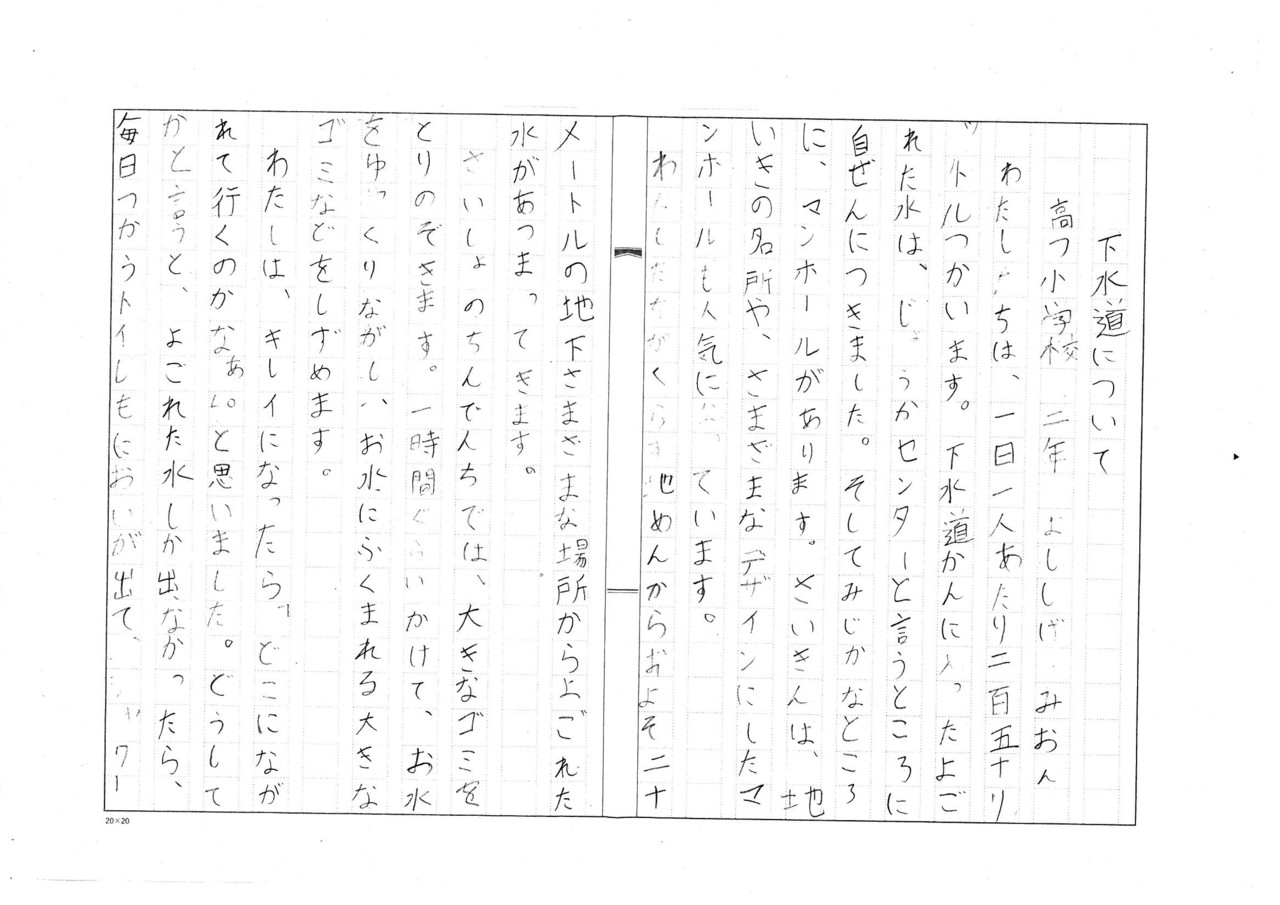 下水道について
高つ小学校 二年 よししげ みおん
わたしたちは、一日一人あたり二百五十リ
ットルつかいます。下水道かんに入ったよご
れた水は、じょうかセンターと言うところに
自ぜんにつきました。そしてみじかなところ
に、マンホールがあります。さいきんは、地
いきの名所や、さまざまなデザインにしたマ
ンホールも人気になっています。
わたしたちがくらす地めんからおよそ二十
メートルの地下さまざまな場所からよごれた
水があつまってきます。
さいしょのちんでんちでは、大きなゴミを
とりのぞきます。一時間ぐらいかけて、お水
をゆっくりながし、お水にふくまれる大きな
ゴミなどをしずめます。
わたしは、キレイになったら「どこになが
れて行くのかなぁ。」と思いました。どうして
かと言うと、よごれた水しか出なかったら、
毎日つかうトイレもにおいが出て、シャワー
20×20